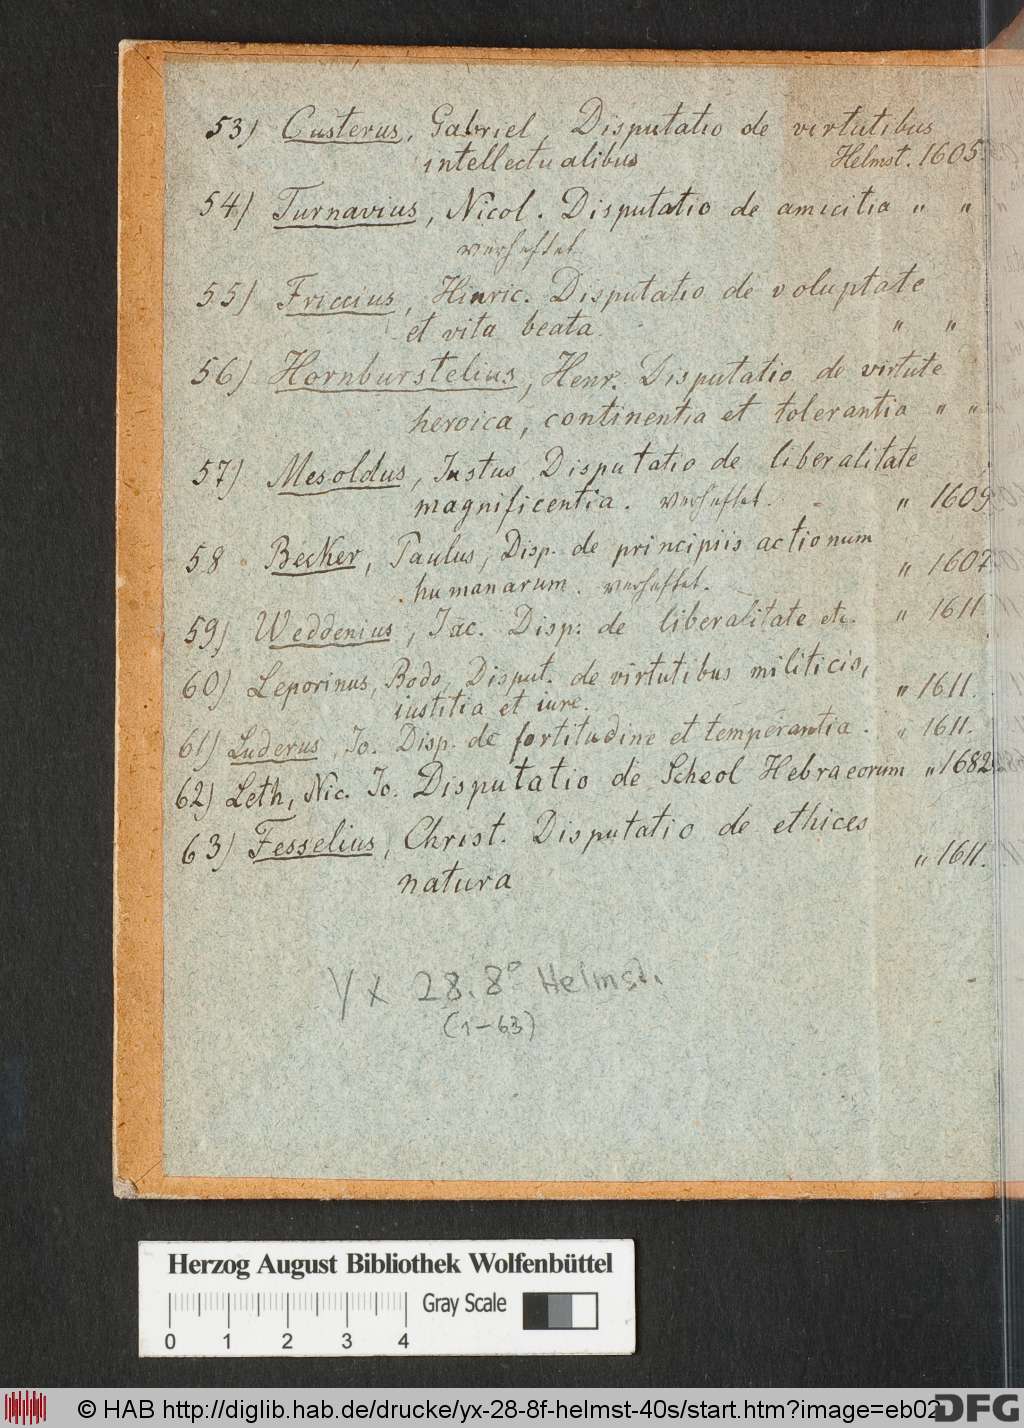 53) Custerus, Gabriel, Disputatio de virtutibus
intellectualibus Helmst. 1605.
54) Turnavius, Nicol. Disputatio de amicitia " "
verheftet
55) Friccius, Hinric. Disputatio de voluptate
et vita beata. " "
56) Hornburstelius, Henr. Disputatio de virtute
heroica, continentia et tolerantia " "
57) Mesoldus, Justus Disputatio de liberalitate
magnificentia. verheftet. " 1609
58 Becker, Paulus, Disp. de principiis actionum
humanarum. verheftet. " 1607
59) Weddenius, Jac. Disp: de liberalitate etc. " 1611
60) Leporinus, Bodo, Disput. de virtutibus militicis,
iustitia et iure. " 1611.
61) Luderus, Jo. Disp. de fortitudine et temperantia. " 1611.
62) Leth, Nic. Jo. Disputatio de Scheol Hebraeorum " 1682
63) Fesselius, Christ. Disputatio de ethices
natura " 1611.
Yx 28. 8° Helmst.
(1-63)
Herzog August Bibliothek Wolfenbüttel
Gray Scale
0 1 2 3 4
© HAB http://diglib.hab.de/drucke/yx-28-8f-helmst-40s/start.htm?image=eb02
DFG